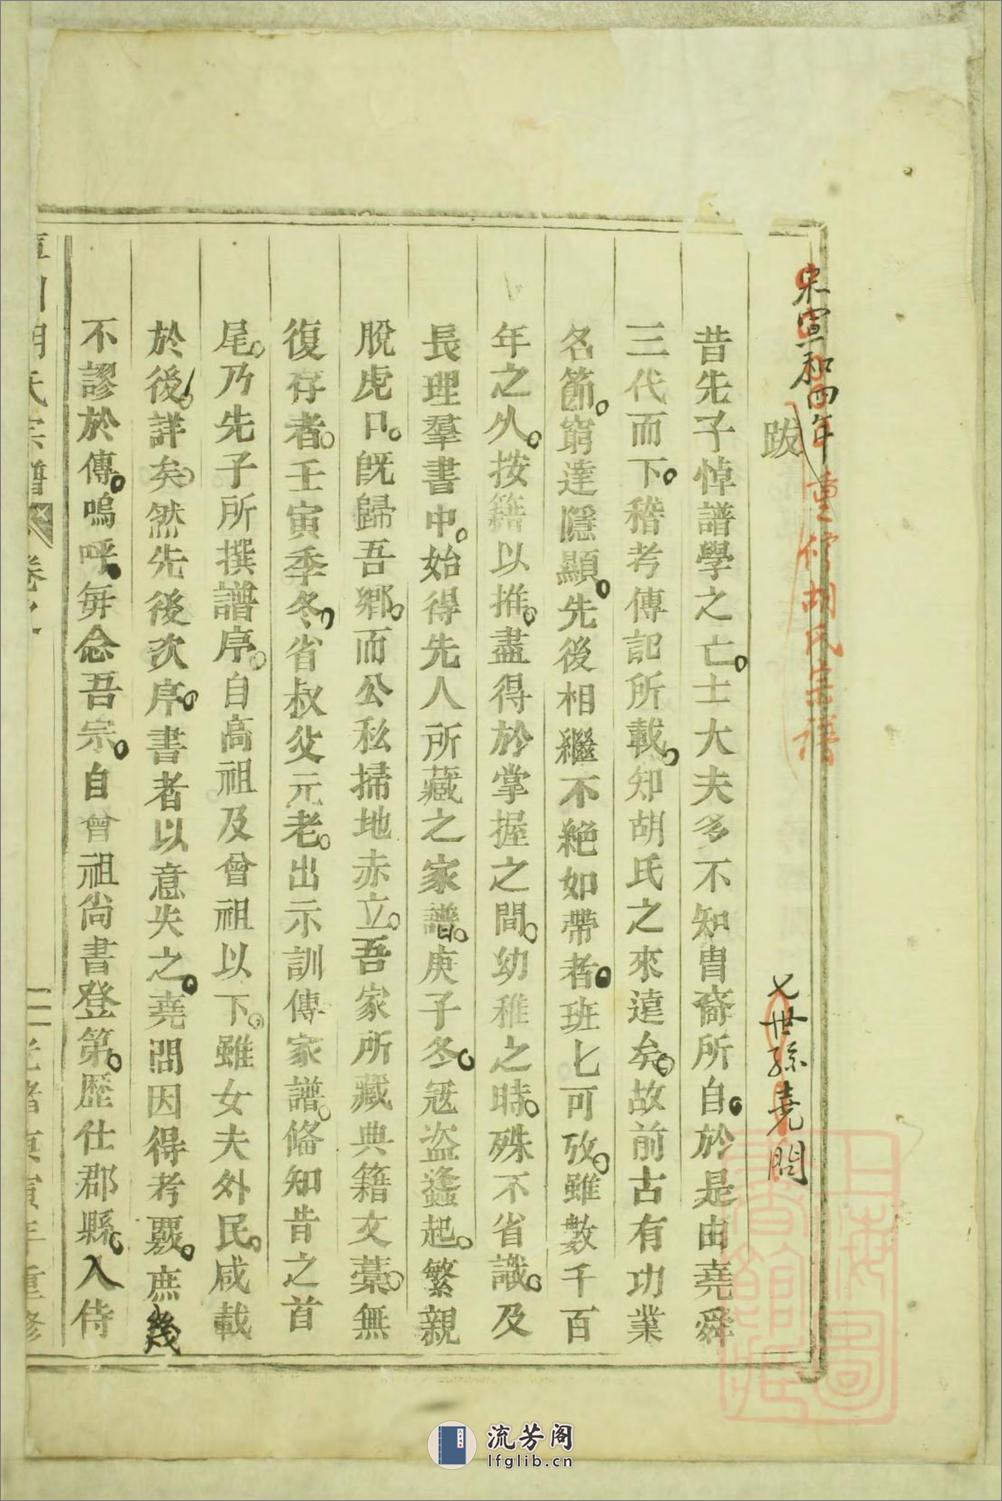 宋宣和四年重修胡氏宗譜
跋
七世孫堯問
昔先子悼譜學之亡士大夫多不知胄裔所自於是由堯舜
三代而下稽考傳記所載知胡氏之來遠矣故前古有功業
名節窮達隱顯先後相繼不絕如帶者班匕可攷雖數千百
年之久按籍以推盡得於掌握之間幼稚之時殊不省識及
長理羣書中始得先人所藏之家譜庚子冬冦盗蠭起繁親
脫虎口既歸吾鄉而公私掃地赤立吾家所藏典籍文藁無
復存者壬寅季冬省叔父元老出示訓傳家譜俻知昔之首
尾乃先子所撰譜序自高祖及曾祖以下雖女夫外民咸載
於後詳矣然先後次序書者以意失之堯問因得考覈庶幾
不謬於傳嗚呼每念吾宗自曾祖尚書登第歷仕郡縣入侍
胡氏宗譜 卷之 光緒庚寅年重修
上海圖書館藏
流芳阁
lfglib.cn